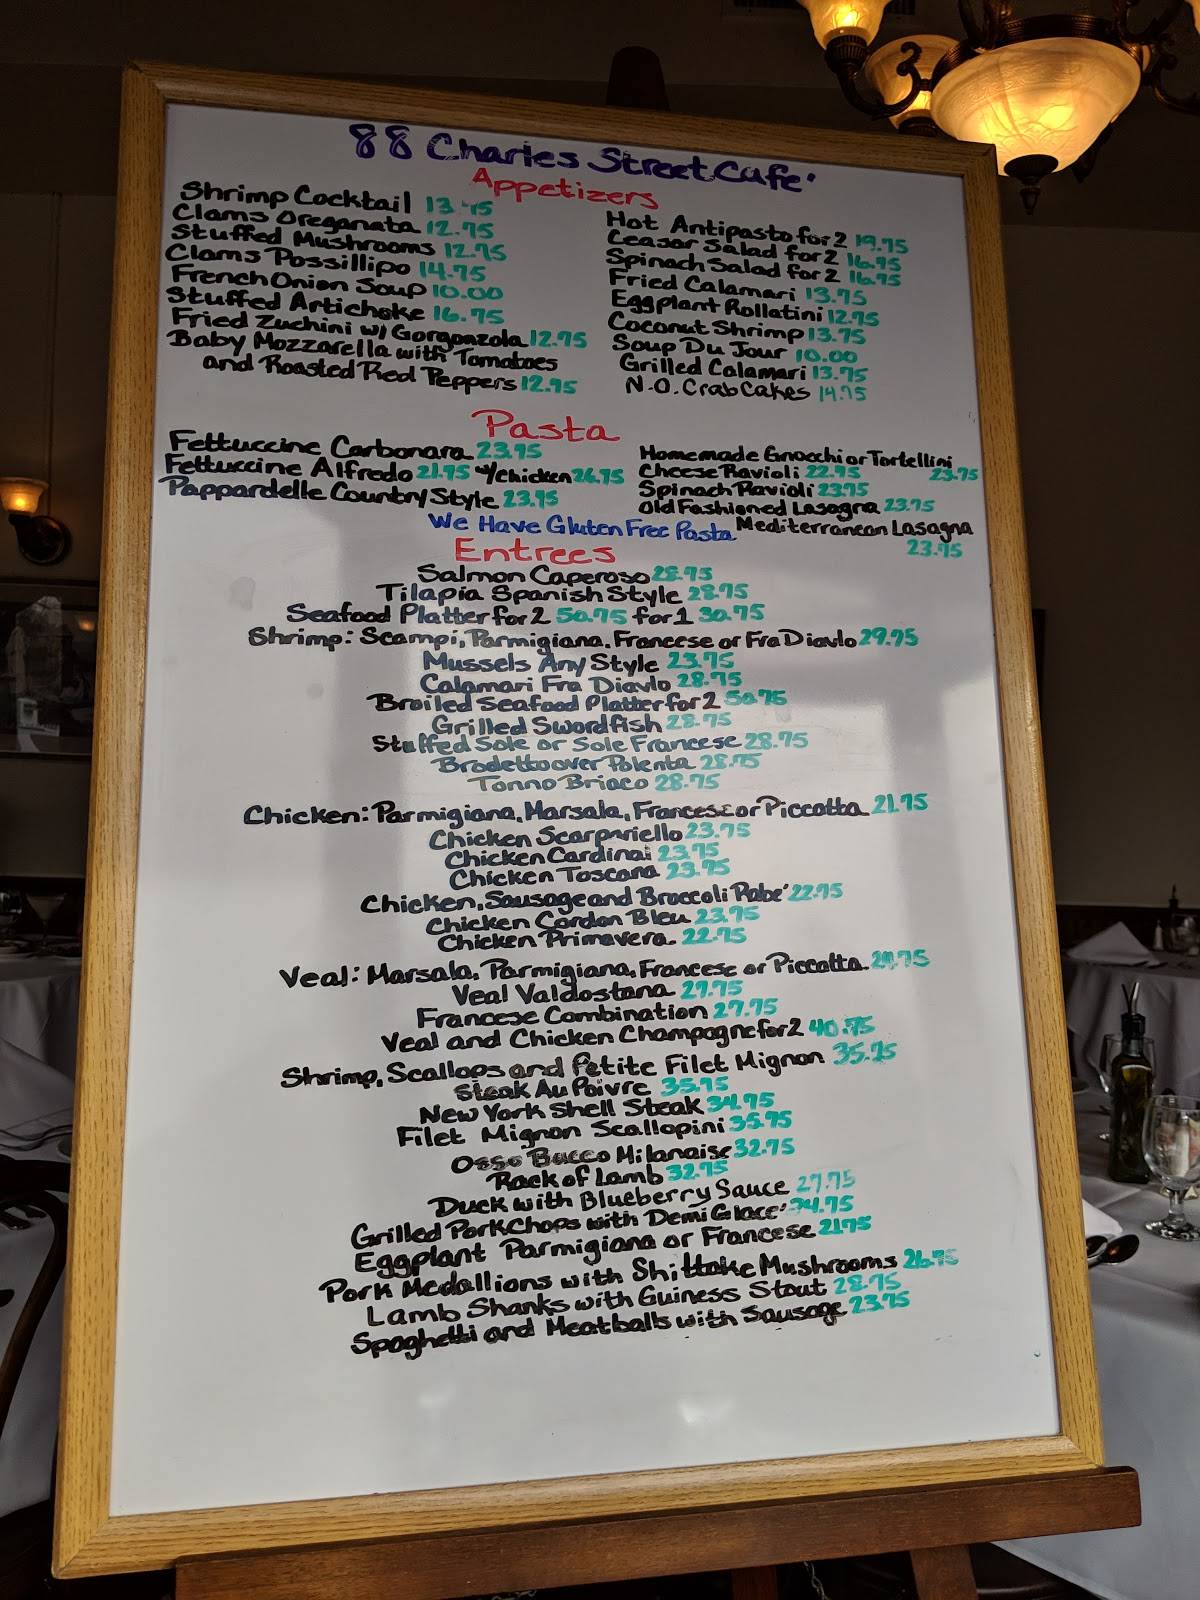 88 Charles Street Cafe'
Appetizers
Shrimp Cocktail 13.75
Clams Oreganata 12.75
Stuffed Mushrooms 12.75
Clams Possillipo 14.75
French Onion Soup 10.00
Stuffed Artichoke 16.75
Fried Zuchini w/ Gorgonzola 12.75
Baby Mozzarella with Tomatoes
and Roasted Red Peppers 12.95
Hot Antipasto for 2 19.75
Ceasar Salad for 2 16.75
Spinach Salad for 2 16.75
Fried Calamari 13.75
Eggplant Rollatini 12.75
Coconut Shrimp 13.75
Soup Du Jour 10.00
Grilled Calamari 13.75
N.O. Crab Cakes 14.75
Pasta
Fettuccine Carbonara 23.95
Fettuccine Alfredo 21.95 w/Chicken 26.75
Pappardelle Country Style 23.95
Homemade Gnocchi or Tortellini
23.75
Cheese Ravioli 22.95
Spinach Ravioli 23.75
Old Fashioned Lasagna 23.75
Mediterranean Lasagna
23.75
We Have Gluten Free Pasta
Entrees
Salmon Caperoso 28.95
Tilapia Spanish Style 28.75
Seafood Platter for 2 50.75 for 1 30.75
Shrimp: Scampi, Parmigiana, Francese or Fra Diavlo 29.75
Mussels Any Style 23.75
Calamari Fra Diavlo 28.75
Broiled Seafood Platter for 2 50.75
Grilled Swordfish 28.75
Stuffed Sole or Sole Francese 28.75
Brodetto over Polenta 28.75
Tonno Briaco 28.75
Chicken: Parmigiana, Marsala, Francese or Piccatta 21.75
Chicken Scarpariello 23.75
Chicken Cardinal 23.75
Chicken Toscana 23.75
Chicken, Sausage and Broccoli Rabe' 22.75
Chicken Cordon Bleu 23.75
Chicken Primavera 22.75
Veal: Marsala, Parmigiana, Francese or Piccatta
Veal Valdostana 27.75
Francese Combination 27.75
Veal and Chicken Champagne for 2 40.75
Shrimp, Scallops and Petite Filet Mignon 35.75
Steak Au Poivre 35.75
New York Shell Steak 34.75
Filet Mignon Scallopini 35.75
Osso Bucco Milanaise 32.75
Rack of Lamb 32.75
Duck with Blueberry Sauce 27.75
Grilled Pork Chops with Demi Glace'
Eggplant Parmigiana or Francese 21.75
Pork Medallions with Shittake Mushrooms 26.75
Lamb Shanks with Guiness Stout 28.75
Spaghetti and Meatballs with Sausage 23.75